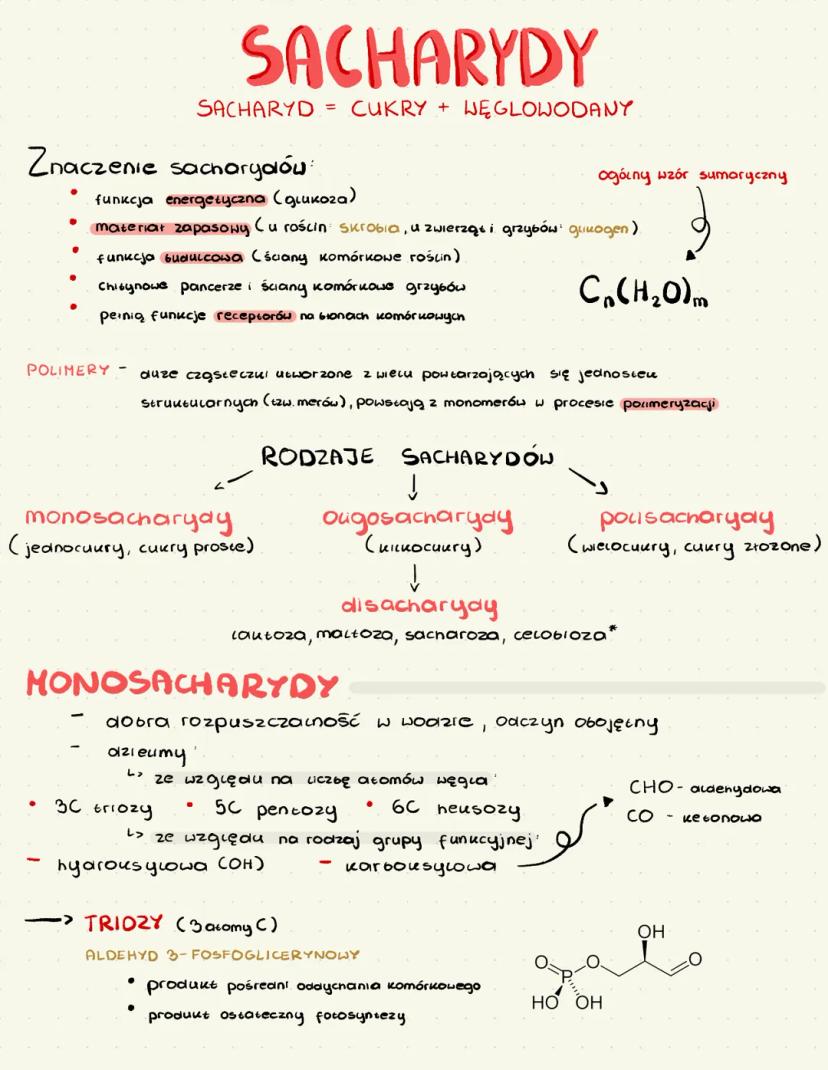 SACHARYDY
SACHARYD = CUKRY + WĘGLOWODANY
Znaczenie sacharydów:
ogólny wzór sumaryczny
• funkcja energetyczna (glukoza)
• materiał zapasowy (u roślin: skrobia, u zwierząt i grzybów: glikogen)
• funkcja budulcowa (ściany komórkowe roślin)
• chitynowe pancerze i ściany komórkowe grzybów
Cn(H2O)m
• pełnią funkcje receptorów na błonach komórkowych
POLIMERY - duże cząsteczki utworzone z wielu powtarzających się jednostek
strukturalnych (tzw. merów), powstają z monomerów w procesie polimeryzacji
RODZAJE SACHARYDÓW
monosacharydy oligosacharydy polisacharydy
(jednocukry, cukry proste) (kilkocukry) (wielocukry, cukry złożone)
disacharydy
laktoza, maltoza, sacharoza, celobioza*
MONOSACHARYDY
- dobra rozpuszczalność w wodzie, odczyn obojętny
- dzielimy:
↳ ze względu na liczbę atomów węgla:
CHO - aldehydowa
• 3C triozy • 5C pentozy • 6C heksozy
CO - ketonowa
↳ ze względu na rodzaj grupy funkcyjnej:
- hydroksylowa (OH) - karboksylowa
→ TRIOZY (3 atomy C)
ALDEHYD 3-FOSFOGLICERYNOWY
• produkt pośredni oddychania komórkowego
• produkt ostateczny fotosyntezy
OH
O O O
P
HO OH